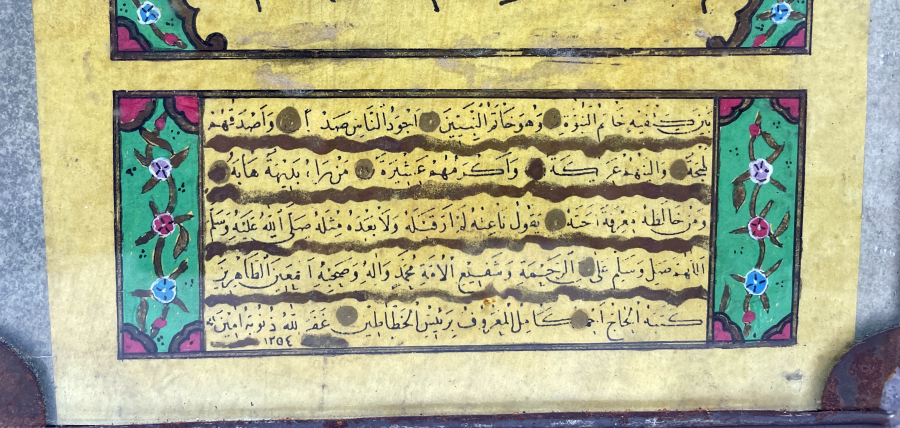 بين كتفيه خاتم النبوة وهو خاتم النبيين اجود الناس صدرا واصدقهم
لهجة والينهم عريكة واكرمهم عشيرة من رآه بديهة هابه
ومن خالطه معرفة احبه يقول ناعته لم ار قبله ولا بعده مثله صلى الله عليه وسلم
اللهم صل وسلم على نبي الرحمة وشفيع الامة محمد وآله وصحبه اجمعين الطاهرين
كتبه الحاج احمد كامل المعروف برئيس الخطاطين غفر الله ذنوبه آمين
١٣٥٤